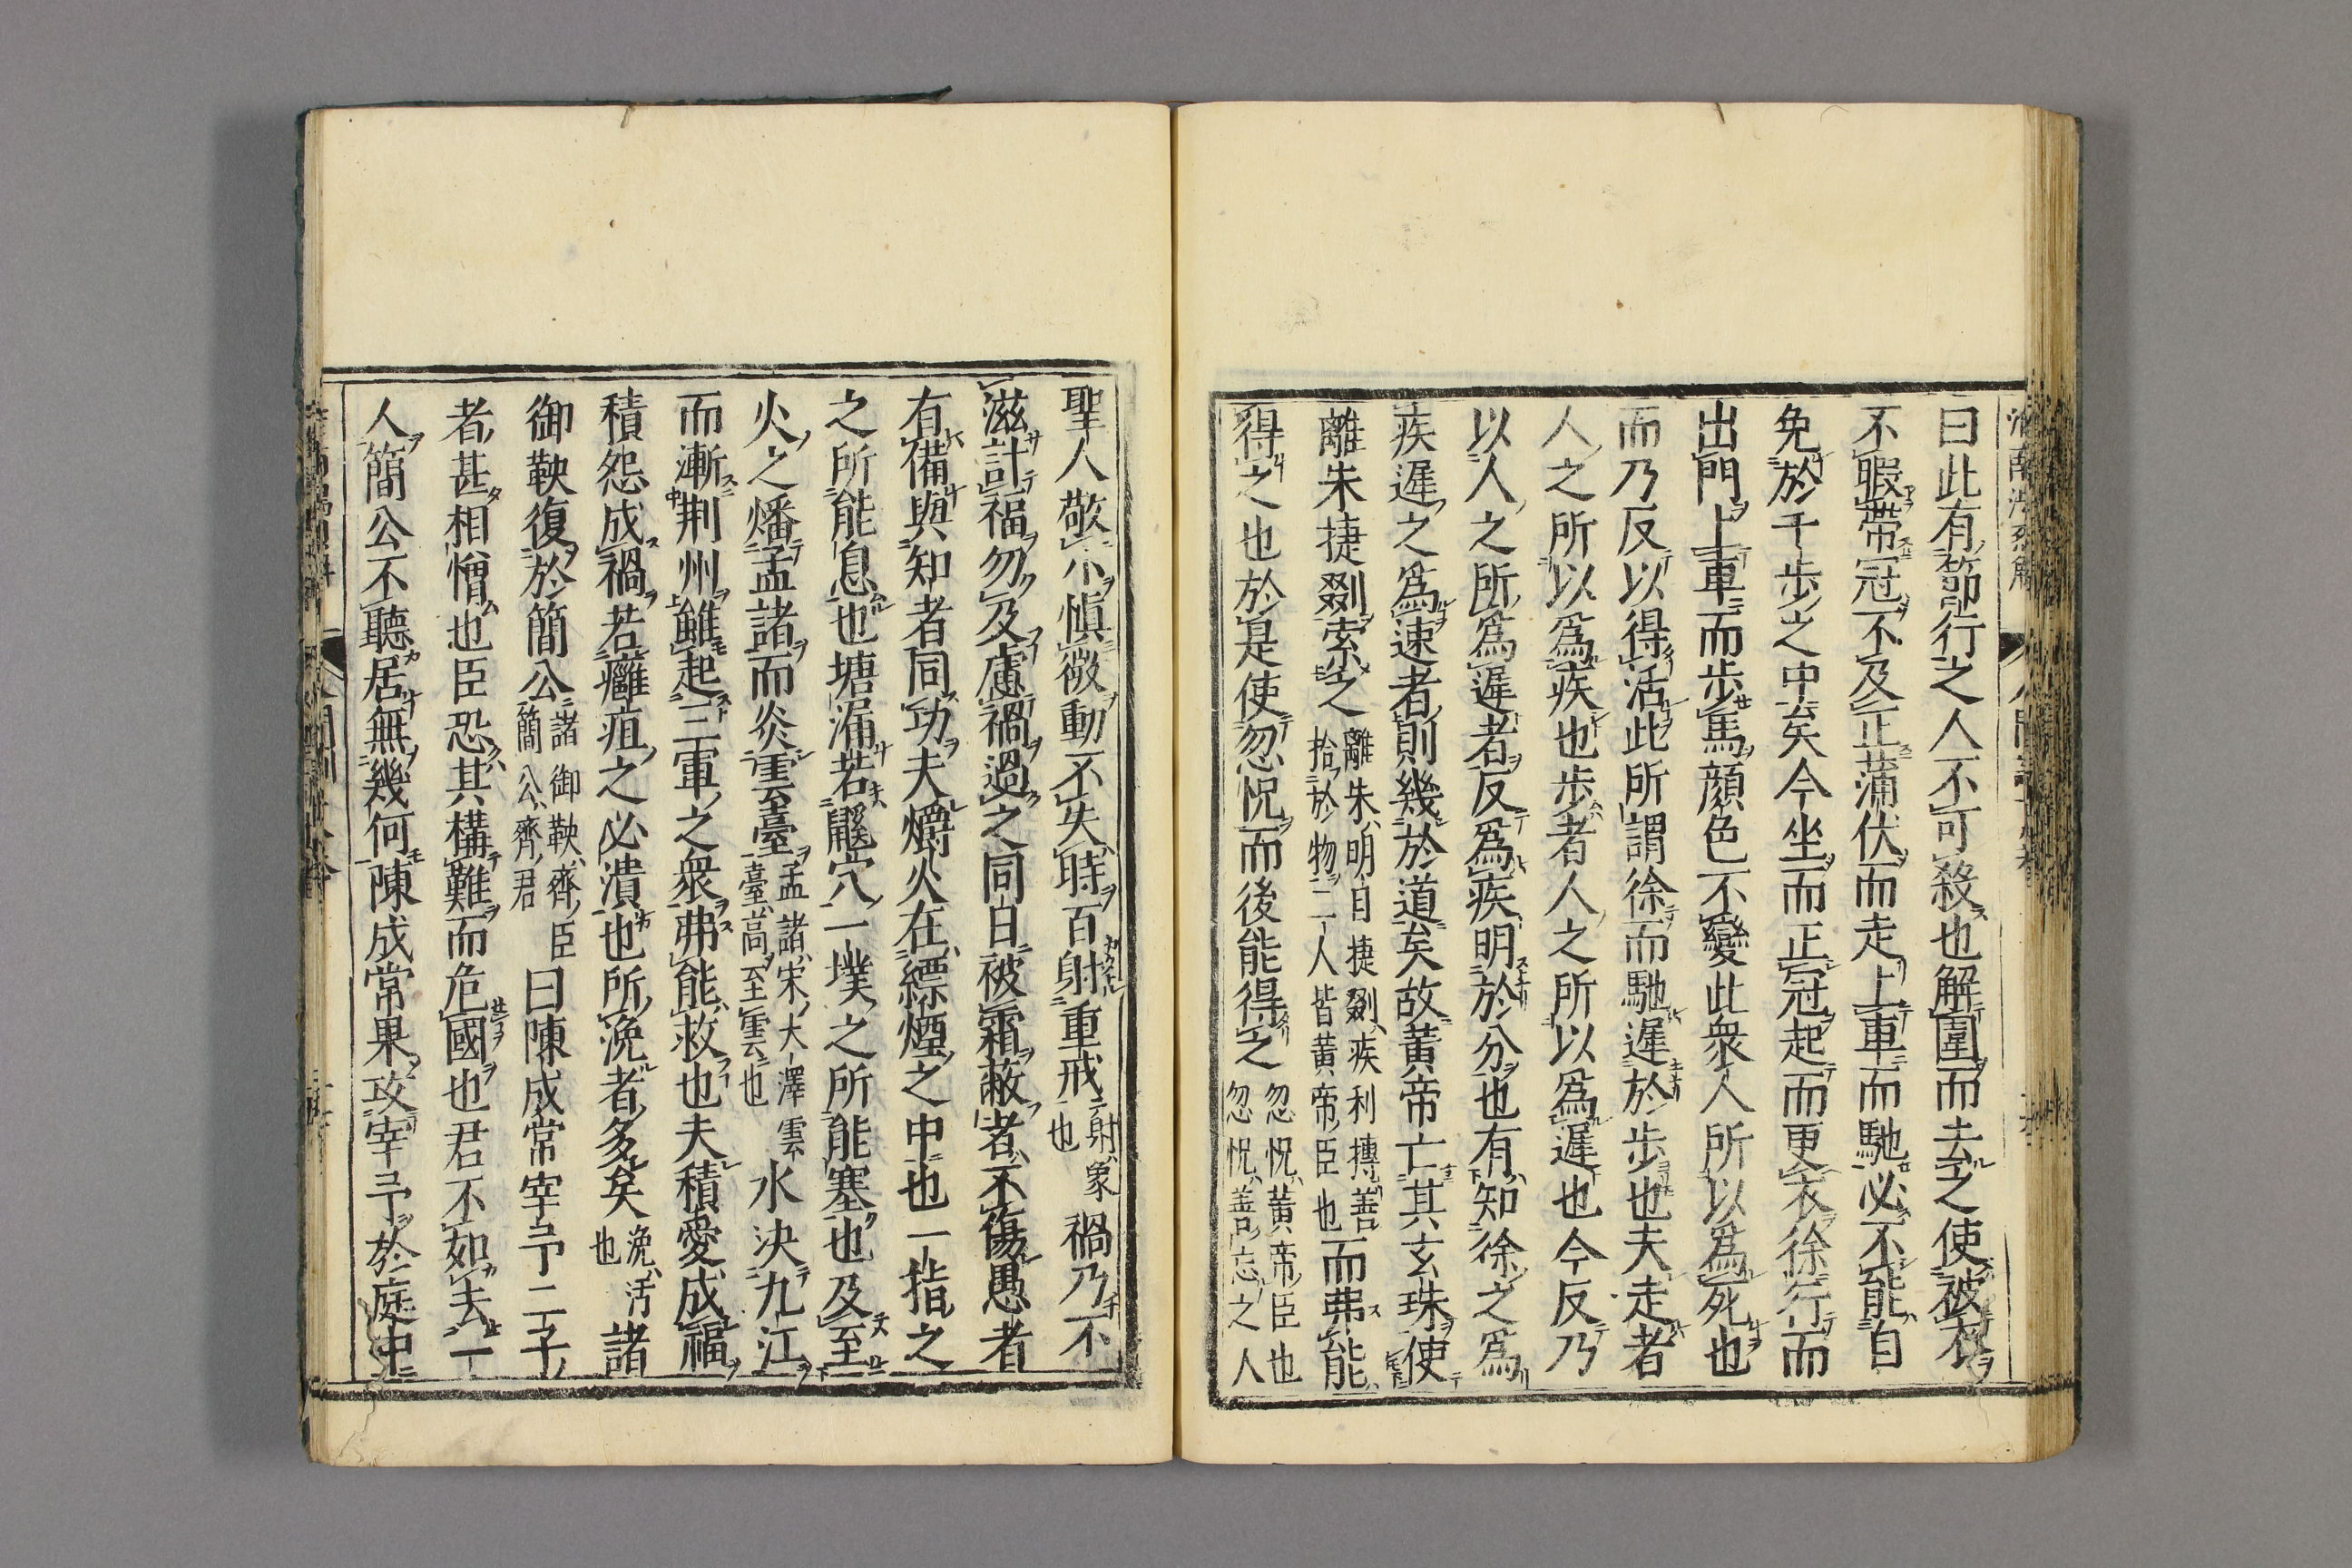 曰此有節行之人不可殺也解圍而去之使被衣
不暇帶冠不及正蒲伏而走上車而馳必不能自
免於千步之中矣今坐而正冠起而更衣徐行而
出門上車而步馬顔色不變此衆人所以爲死也
而乃反以得活此所謂徐而馳遲於步也夫走者
人之所以爲疾也步者人之所以爲遲也今反乃
以人之所爲遲者反爲疾明於分也有知徐之爲
疾遲之爲速者則幾於道矣故黄帝亡其玄珠使
離朱捷剟索之離朱明目捷剟疾利摶善拾於物二人皆黄帝臣也而弗能
得之也於是使忽怳而後能得之忽怳黄帝臣也忽怳善忘之人
聖人敬小慎微動不失時百射重戒射象也禍乃不
滋計福勿及慮禍過之同日被霜蔽者不傷愚者
有備與知者同功夫爝火在縹煙之中也一指之
所能息也塘漏若鼷穴一墣之所能塞也及至
火之燔孟諸而炎雲臺孟諸宋大澤雲臺高至雲也水決九江
而漸荆州雖起三軍之衆弗能救也夫積愛成福
積怨成禍若癰疽之必潰也所浼者多矣浼汚也諸
御鞅復於簡公諸御鞅齊臣簡公齊君曰陳成常宰予二子
者甚相憎也臣恐其構難而危國也君不如去一
人簡公不聽居無幾何陳成常果攻宰予於庭中